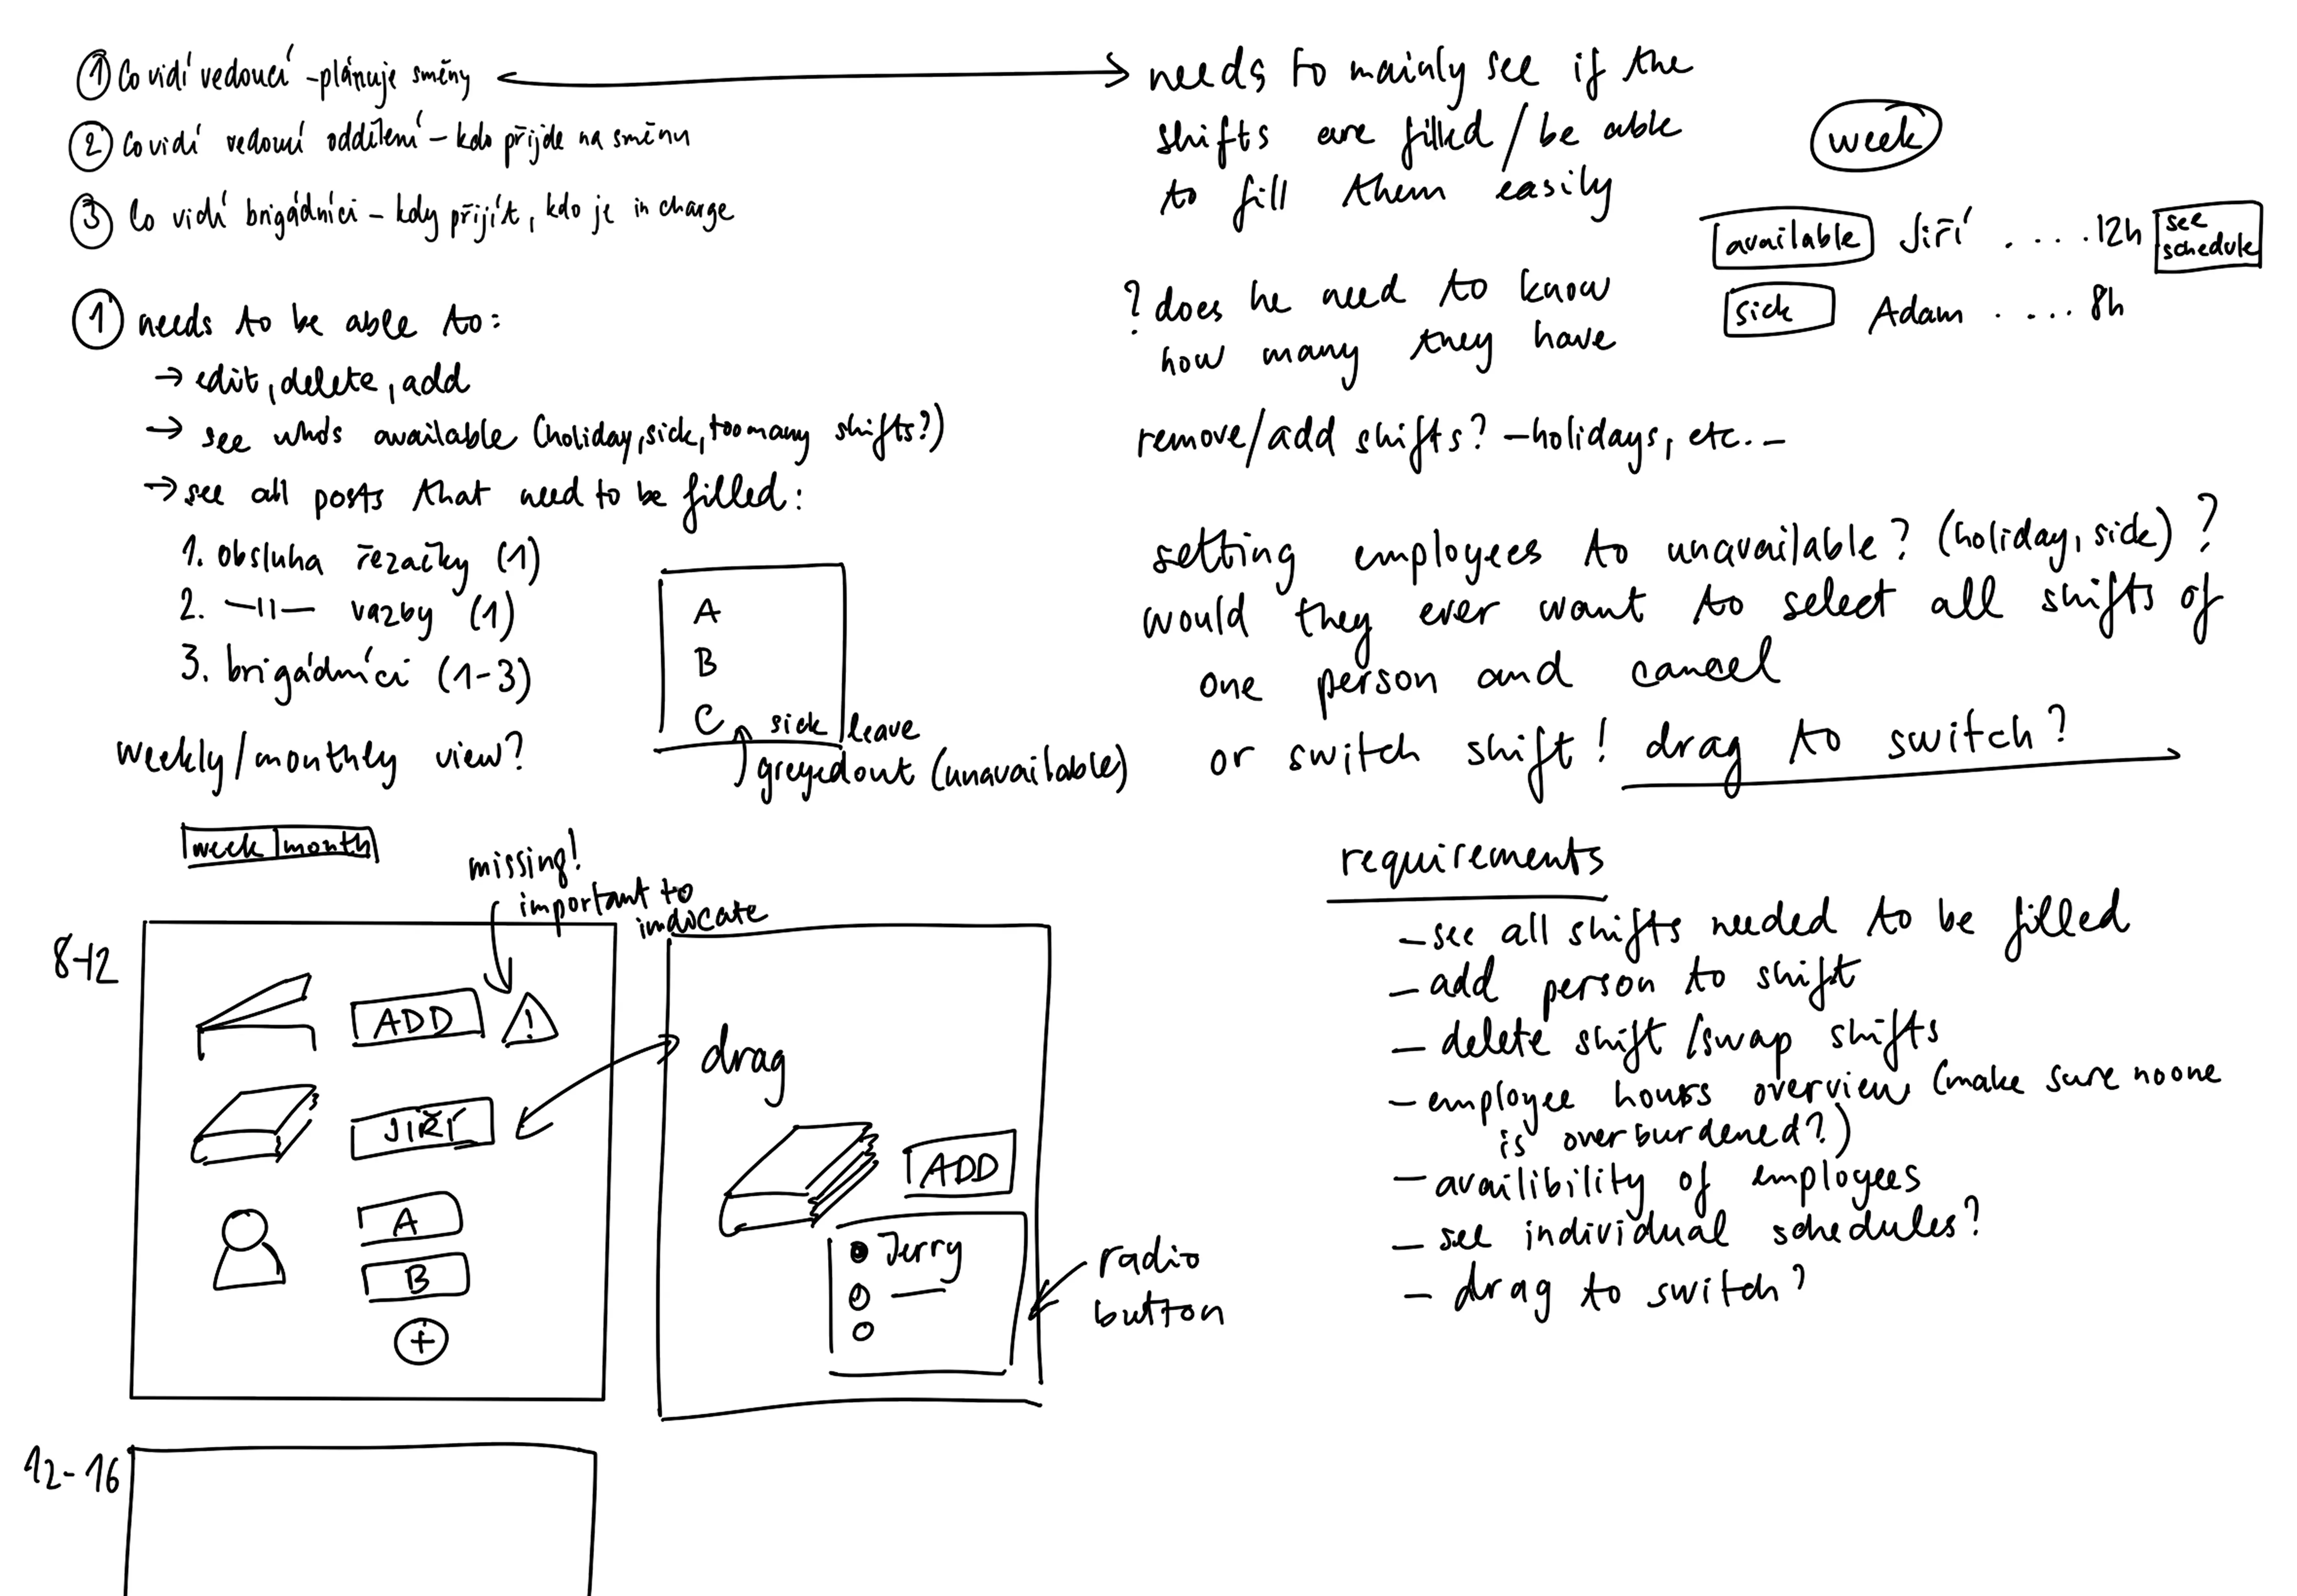 ① Co vidí vedoucí - plánuje směny
② Co vidí vedoucí oddělení - kdo přijde na směnu
③ Co vidí brigádníci - kdy přijít, kdo je in charge
① needs to be able to:
→ edit, delete, add
→ see who's available (holiday, sick, too many shifts?)
→ see all posts that need to be filled:
1. obsluha řezačky (1)
2. —॥— vazby (1)
3. brigádníci (1-3)
A
B
C
sick leave
greyed out (unavailable)
weekly/monthly view?
week | month
missing!
important to
indicate
8-12
ADD
!
JIŘÍ
A
B
+
drag
ADD
Jerry
radio
button
12-16
needs to mainly see if the
shifts are filled / be able
to fill them easily
week
available Jiří ....12h see
schedule
sick Adam ....8h
? does he need to know
how many they have
remove/add shifts? - holidays, etc. -
setting employees to unavailable? (holiday, sick)?
would they ever want to select all shifts of
one person and cancel
or switch shift! drag to switch?
requirements
- see all shifts needed to be filled
- add person to shift
- delete shift / swap shifts
- employee hours overview (make sure no one
is overburdened?)
- availibility of employees
- see individual schedules?
- drag to switch?